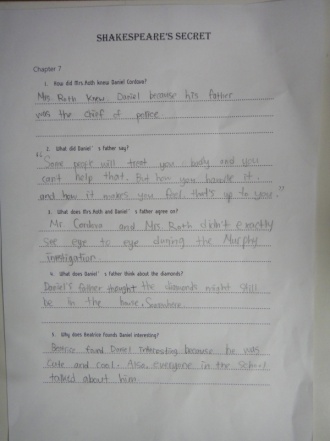 SHAKESPEARE'S SECRET
Chapter 7
1. How did Mrs.Roth knew Daniel Cordova?
Mrs. Roth knew Daniel because his father
was the chief of police
2. What did Daniel's father say?
"Some people will treat you badly and you
can't help that. But how you handle it,
and how it makes you feel, that's up to you."
3. What does Mrs.Roth and Daniel's father agree on?
Mr. Cordova and Mrs Roth didn't exactly
see eye to eye during the Murphy
investigation.
4. What does Daniel's father think about the diamonds?
Daniel's father thought the diamonds might still
be in the house, Somewhere
5. Why does Beatrice founds Daniel interesting?
Beatrice found Daniel Interesting because he was
cute and cool. Also, everyone in the school
talked about him